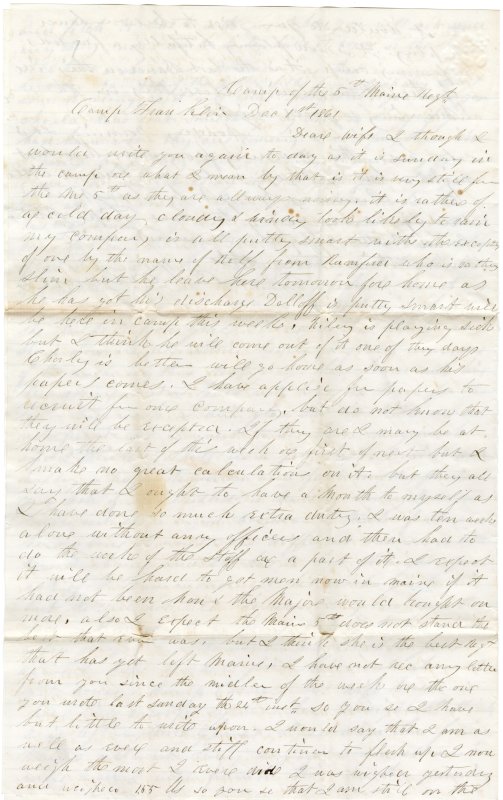 Camp of the 5th Maine Regt
Camp Franklin Dec 1st 1861
Dear wife I though I
would write you again to day as it is sunday in
the camp or what I mean by that is it is very still for
the Me 5th as they are allways noisey. it is rather of
a cold day cloudy & kinder look likely to rain
my company is all putty smart with the exception
of one by the name of from Rumford who is verry
slim but he leave here tomorrow for home as
he has got his discharge Dolloff is putty smart will
be here in camp this week, is playing sick
but I think he will come out of it one of they days
Charley is better will go home as soon as his
papers comes. I have applied for papers to
recruit for one Company, but do not know that
they will be excepted. If they are I may be at
home the last of this week or first of next but I
make no great calculations on it. but they all
say that I ought to have a Month to myself as
I have done so much extra duty. I was ten weeks
alone without anny officers and then had to
do the work of the Staff or a part of it. I expect
it will be hard to get men now in maine if it
had not been the Majors would on
more, also I expect the Maine 5th does not stand the
best that ever was. but I think she is the best regt
that has yet left Maine, I have not rec any letter
from you since the midler of the week or the one
you wrote last sunday the 24th inst, so you se I have
but little to write upon. I would say that I am as
well as ever and still continue to flesh up. I now
weigh the most I ever did I was weighed yesterday
and weighed 155 lbs so you se that I am still on the